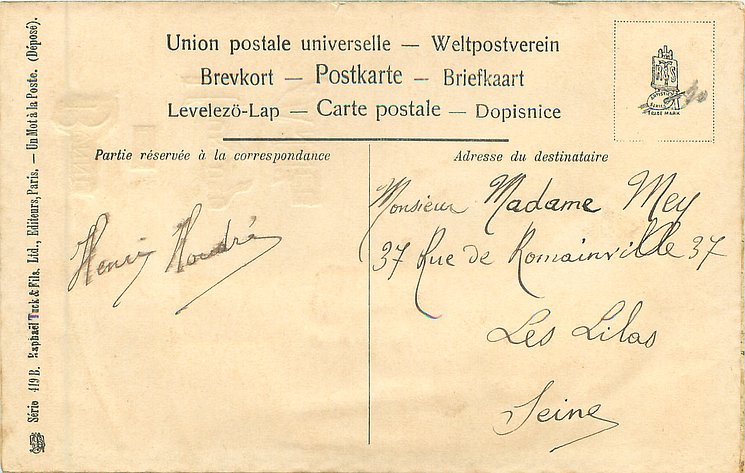 Union postale universelle — Weltpostverein
Brevkort — Postkarte — Briefkaart
Levelezö-Lap — Carte postale — Dopisnice
Partie réservée à la correspondance
Henri Houdré
Adresse du destinataire
Monsieur Madame Mey
37 Rue de Romainville 37
Les Lilas
Seine
Série 419 B. Raphaël Tuck & Fils, Ltd., Editeurs, Paris. — Un Mot à la Poste. (Déposé).
ARTISTIC
SERIES
TRADE MARK